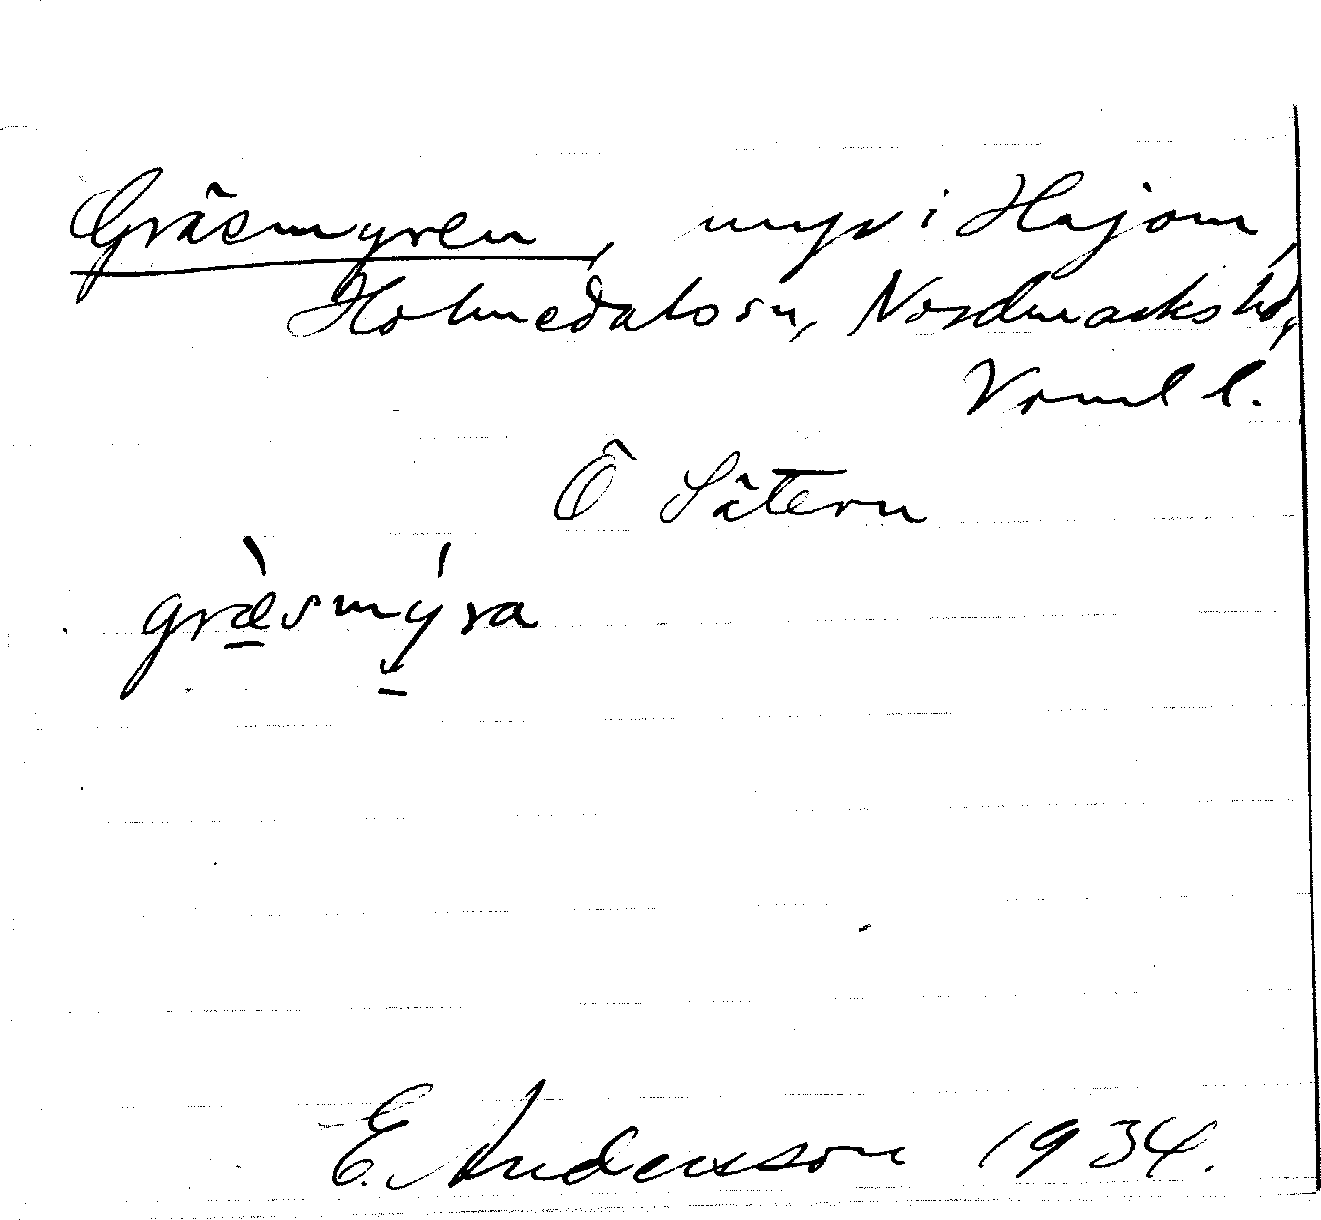 Gräsmyren, myr i Högom,
Holmedals sn, Nordmarks hd,
Värml l.
Ö Sätern
græ̀smýra
E. Andersson 1934.